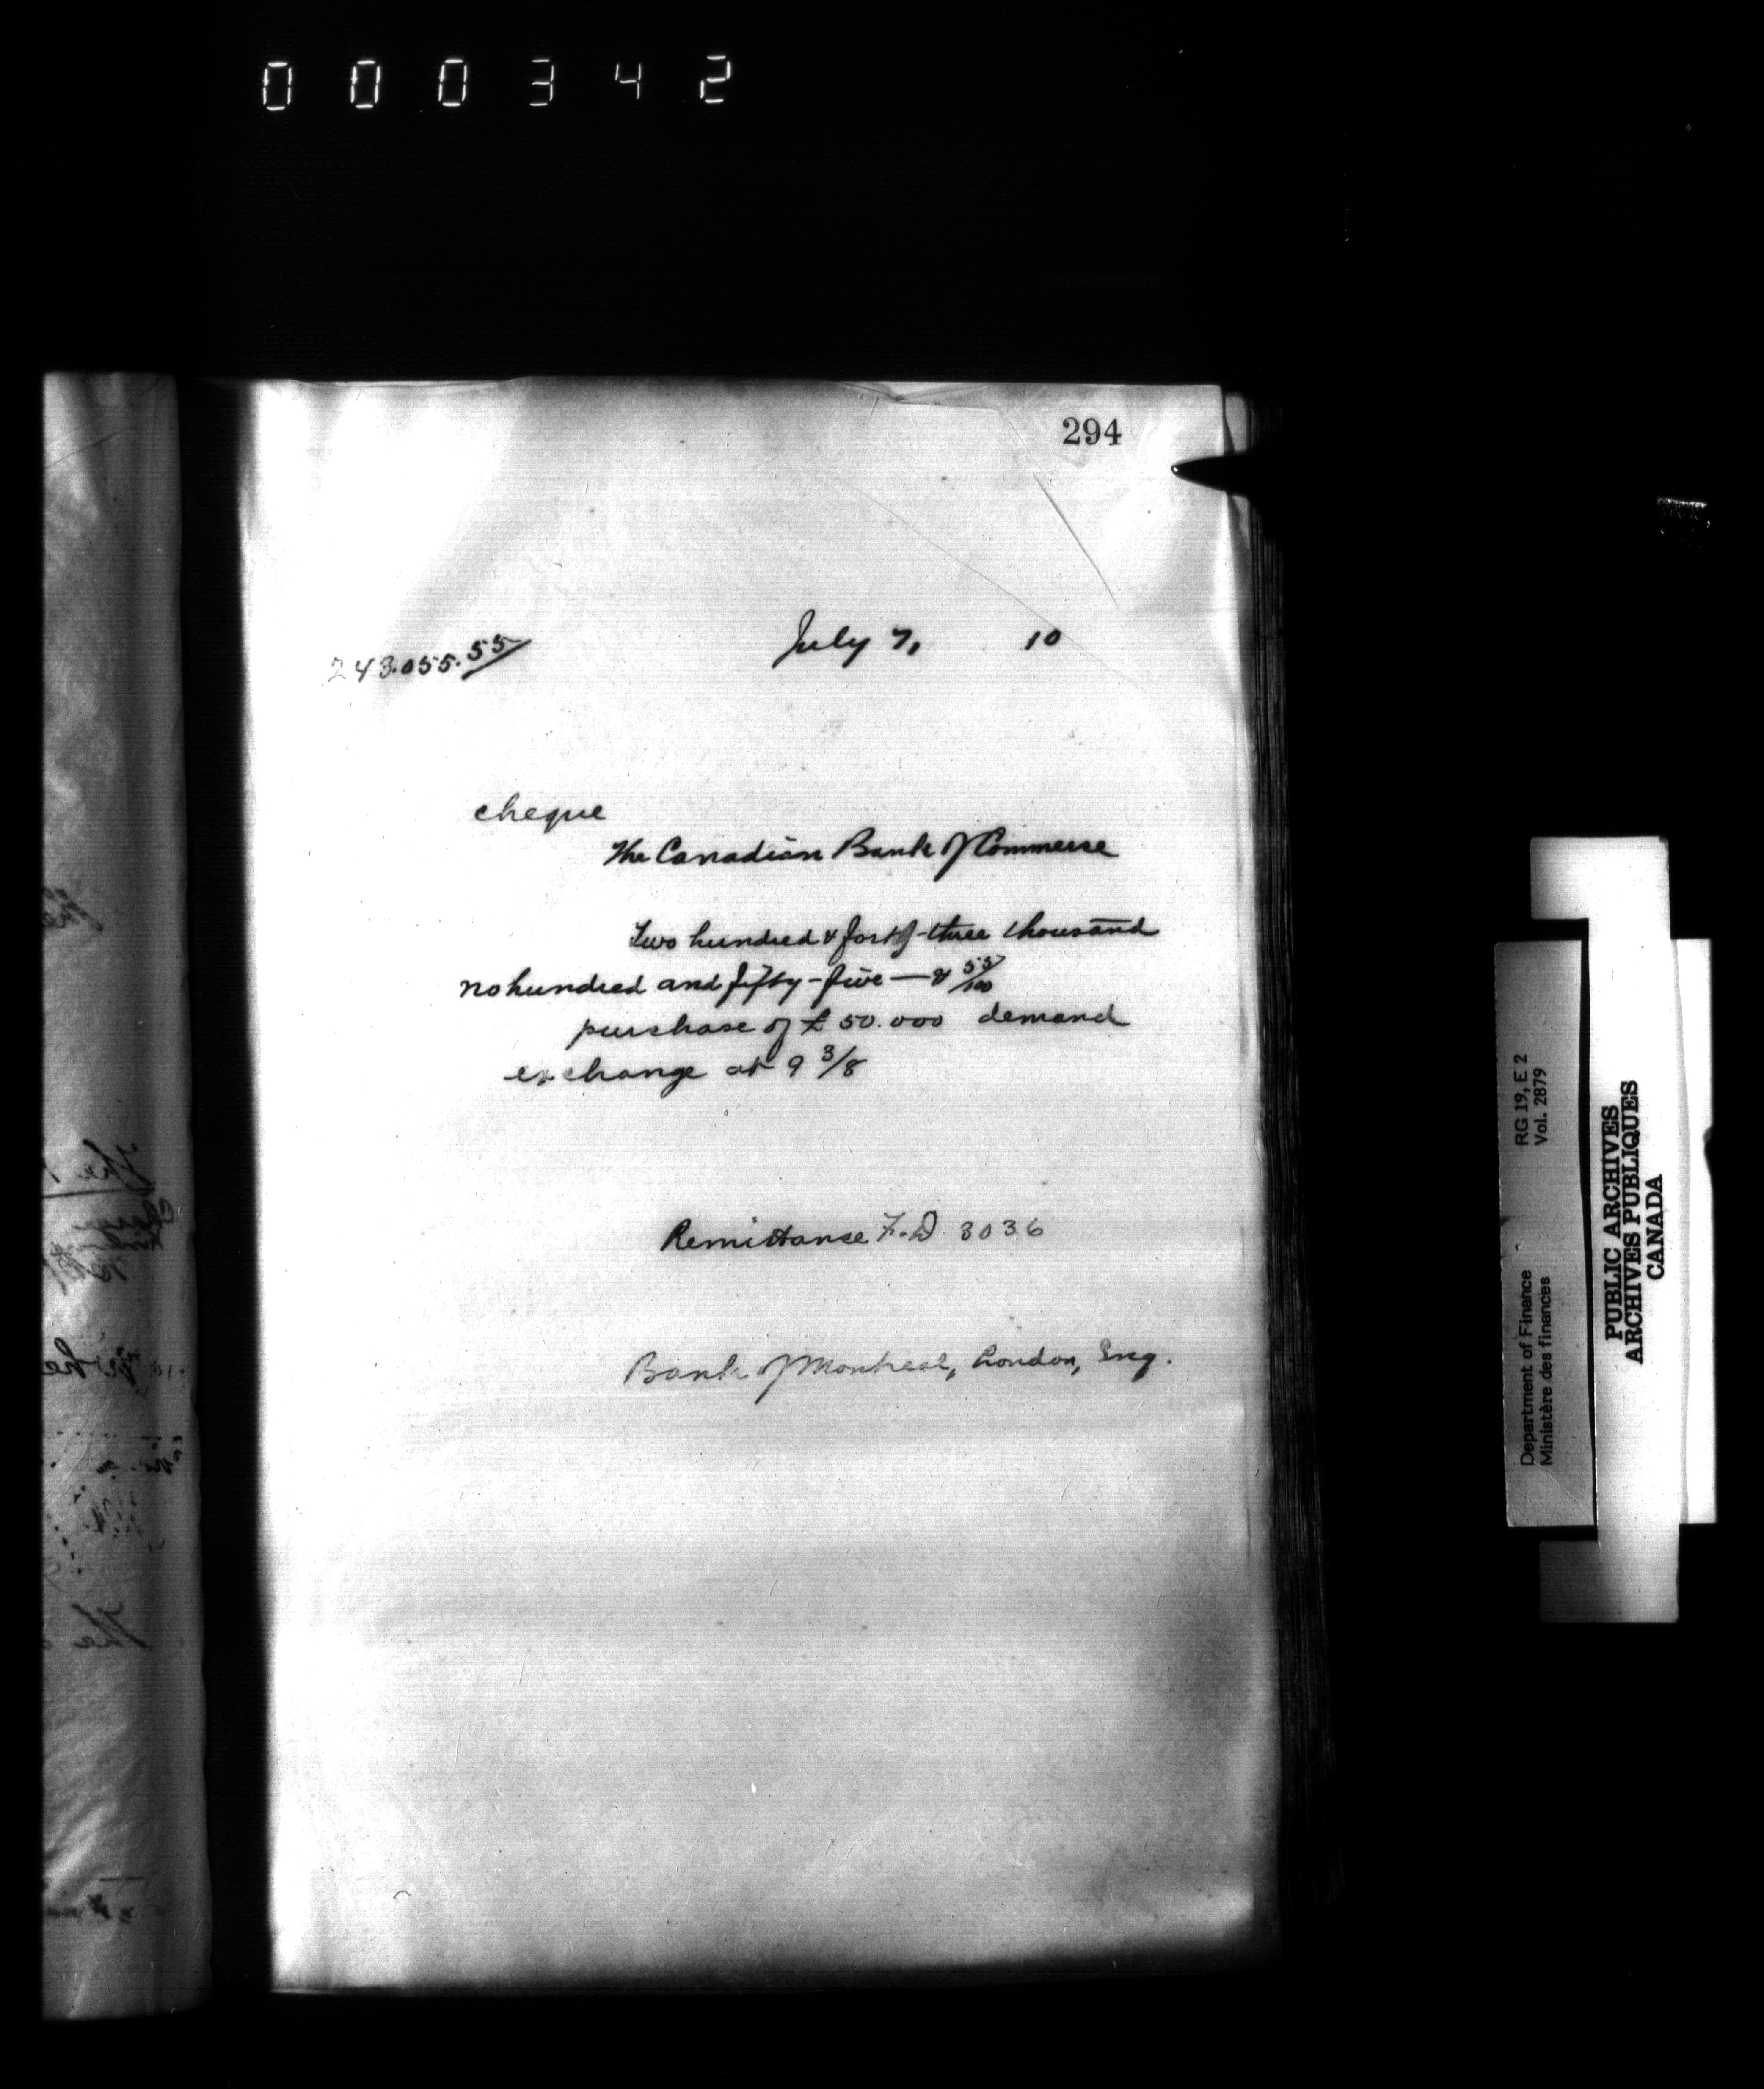 000342
294
243.055.55
July 7, 10
cheque
The Canadian Bank of Commerce
Two hundred & forty-three thousand
no hundred and fifty-five — & 55/100
purchase of £ 50.000 demand
exchange at 9 3/8
Remittance F.D 3036
Bank of Montreal, London, Eng.
Department of Finance RG 19, E 2
Ministère des finances Vol. 2879
PUBLIC ARCHIVES
ARCHIVES PUBLIQUES
CANADA